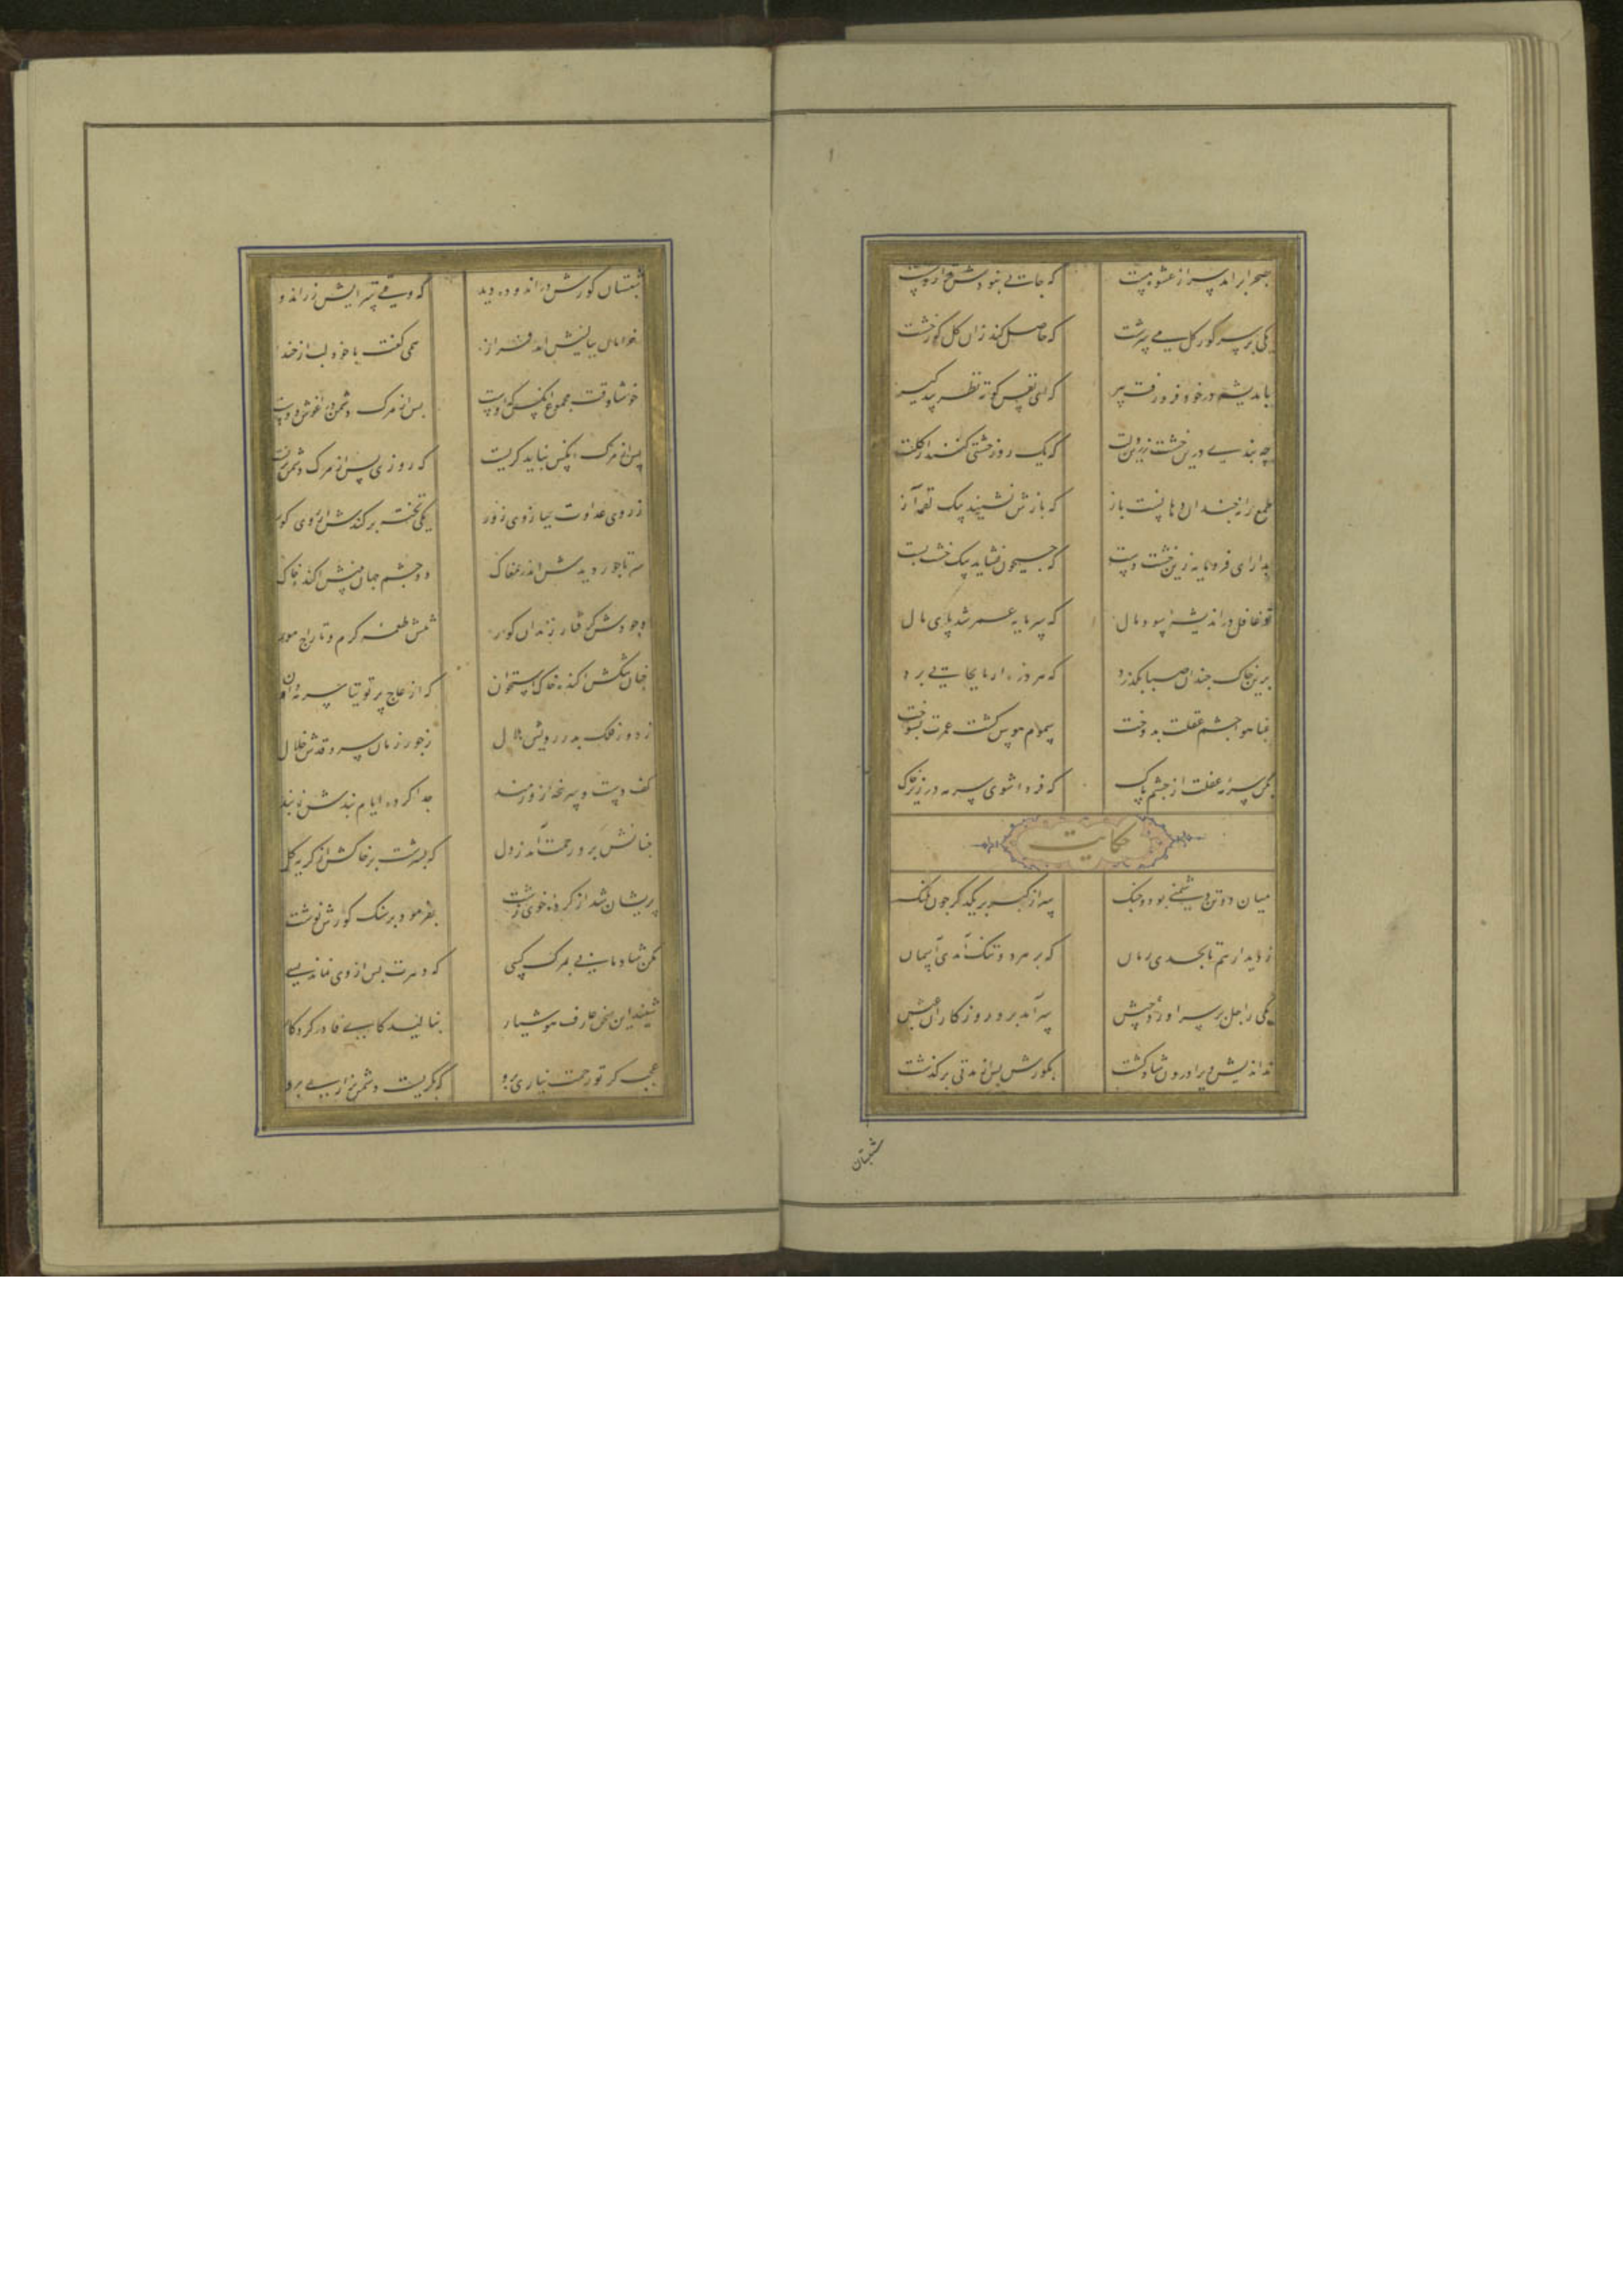 بصحرا برآمد سر از عشوه مست که جائی نبودش قرار نشست
یکی بر سر کور کل می سرشت که حاصل کند زان کل کور خشت
باندیشه در خود فرو رفت پیر که ای نفس کوته نظر پند کیر
چه بندی درین خشت زرین دلت که یک روز خشتی کنند از کلت
طمع را نه چندان دهانست باز که بازش نشیند بیک لقمه آز
بدار ای فرومایه زین خشت دست که جیحون نشاید بیک خشت بست
تو غافل در اندیشه سود و مال که سرمایه عمر شد پای مال
برین خاک چندان صبا بکذرد که هر ذره از ما بجایی برد
غبار هوا چشم عقلت بدوخت سموم هوس کشت عمرت بسوخت
بکن سرمه غفلت از چشم پاک که فردا شوی سرمه در زیر خاک
حکایت
میان دو تن دشمنی بود و جنک سر از کبر بر یکدکر چون پلنک
ز دیدار هم تا بحدی رمان که بر هر دو تنک آمدی آسمان
یکی را اجل بر سر آورد جیش سر آمد برو روزکاران عیش
بداندیش ویرا درون شاد کشت بکورش پس از مدتی برکذشت
شبستان
شبستان کورش در اندوده دید که وقتی سرایش زراندوده دید
خرامان ببالینش آمد فراز همی کفت با خود لب از خنده
خوشا وقت مجموع آنکس که اوست پس از مرک دشمن در آغوش دوست
پس از مرک آنکس نباید کریست که روزی پس از مرک دشمن بزیست
ز روی عداوت ببازوی زور یکی تخته برکندش از روی کور
سر تاجور دیدش اندر مغاک دو چشم جهان بینش آکنده خاک
وجودش کرفتار زندان کور تنش طعمه کرم و تاراج مور
چنان تنکش آکنده خاک استخوان که از عاج پر توتیا سرمه دان
ز دور فلک بدر رویش هلال ز جور زمان سرو قدش خلال
کف دست و سرپنجه زورمند جدا کرده ایام بندش ز بند
چنانش برو رحمت آمد ز دل که بسرشت بر خاکش از کریه کل
پریشان شد از کرده و خوی زشت بفرمود بر سنک کورش نوشت
مکن شادمانی بمرک کسی که دهرت پس از وی نماند بسی
شنید این سخن عارف هوشیار بنالید کای قادر کردکار
عجب کر تو رحمت نیاری برو که بکریست دشمن بزاری برو